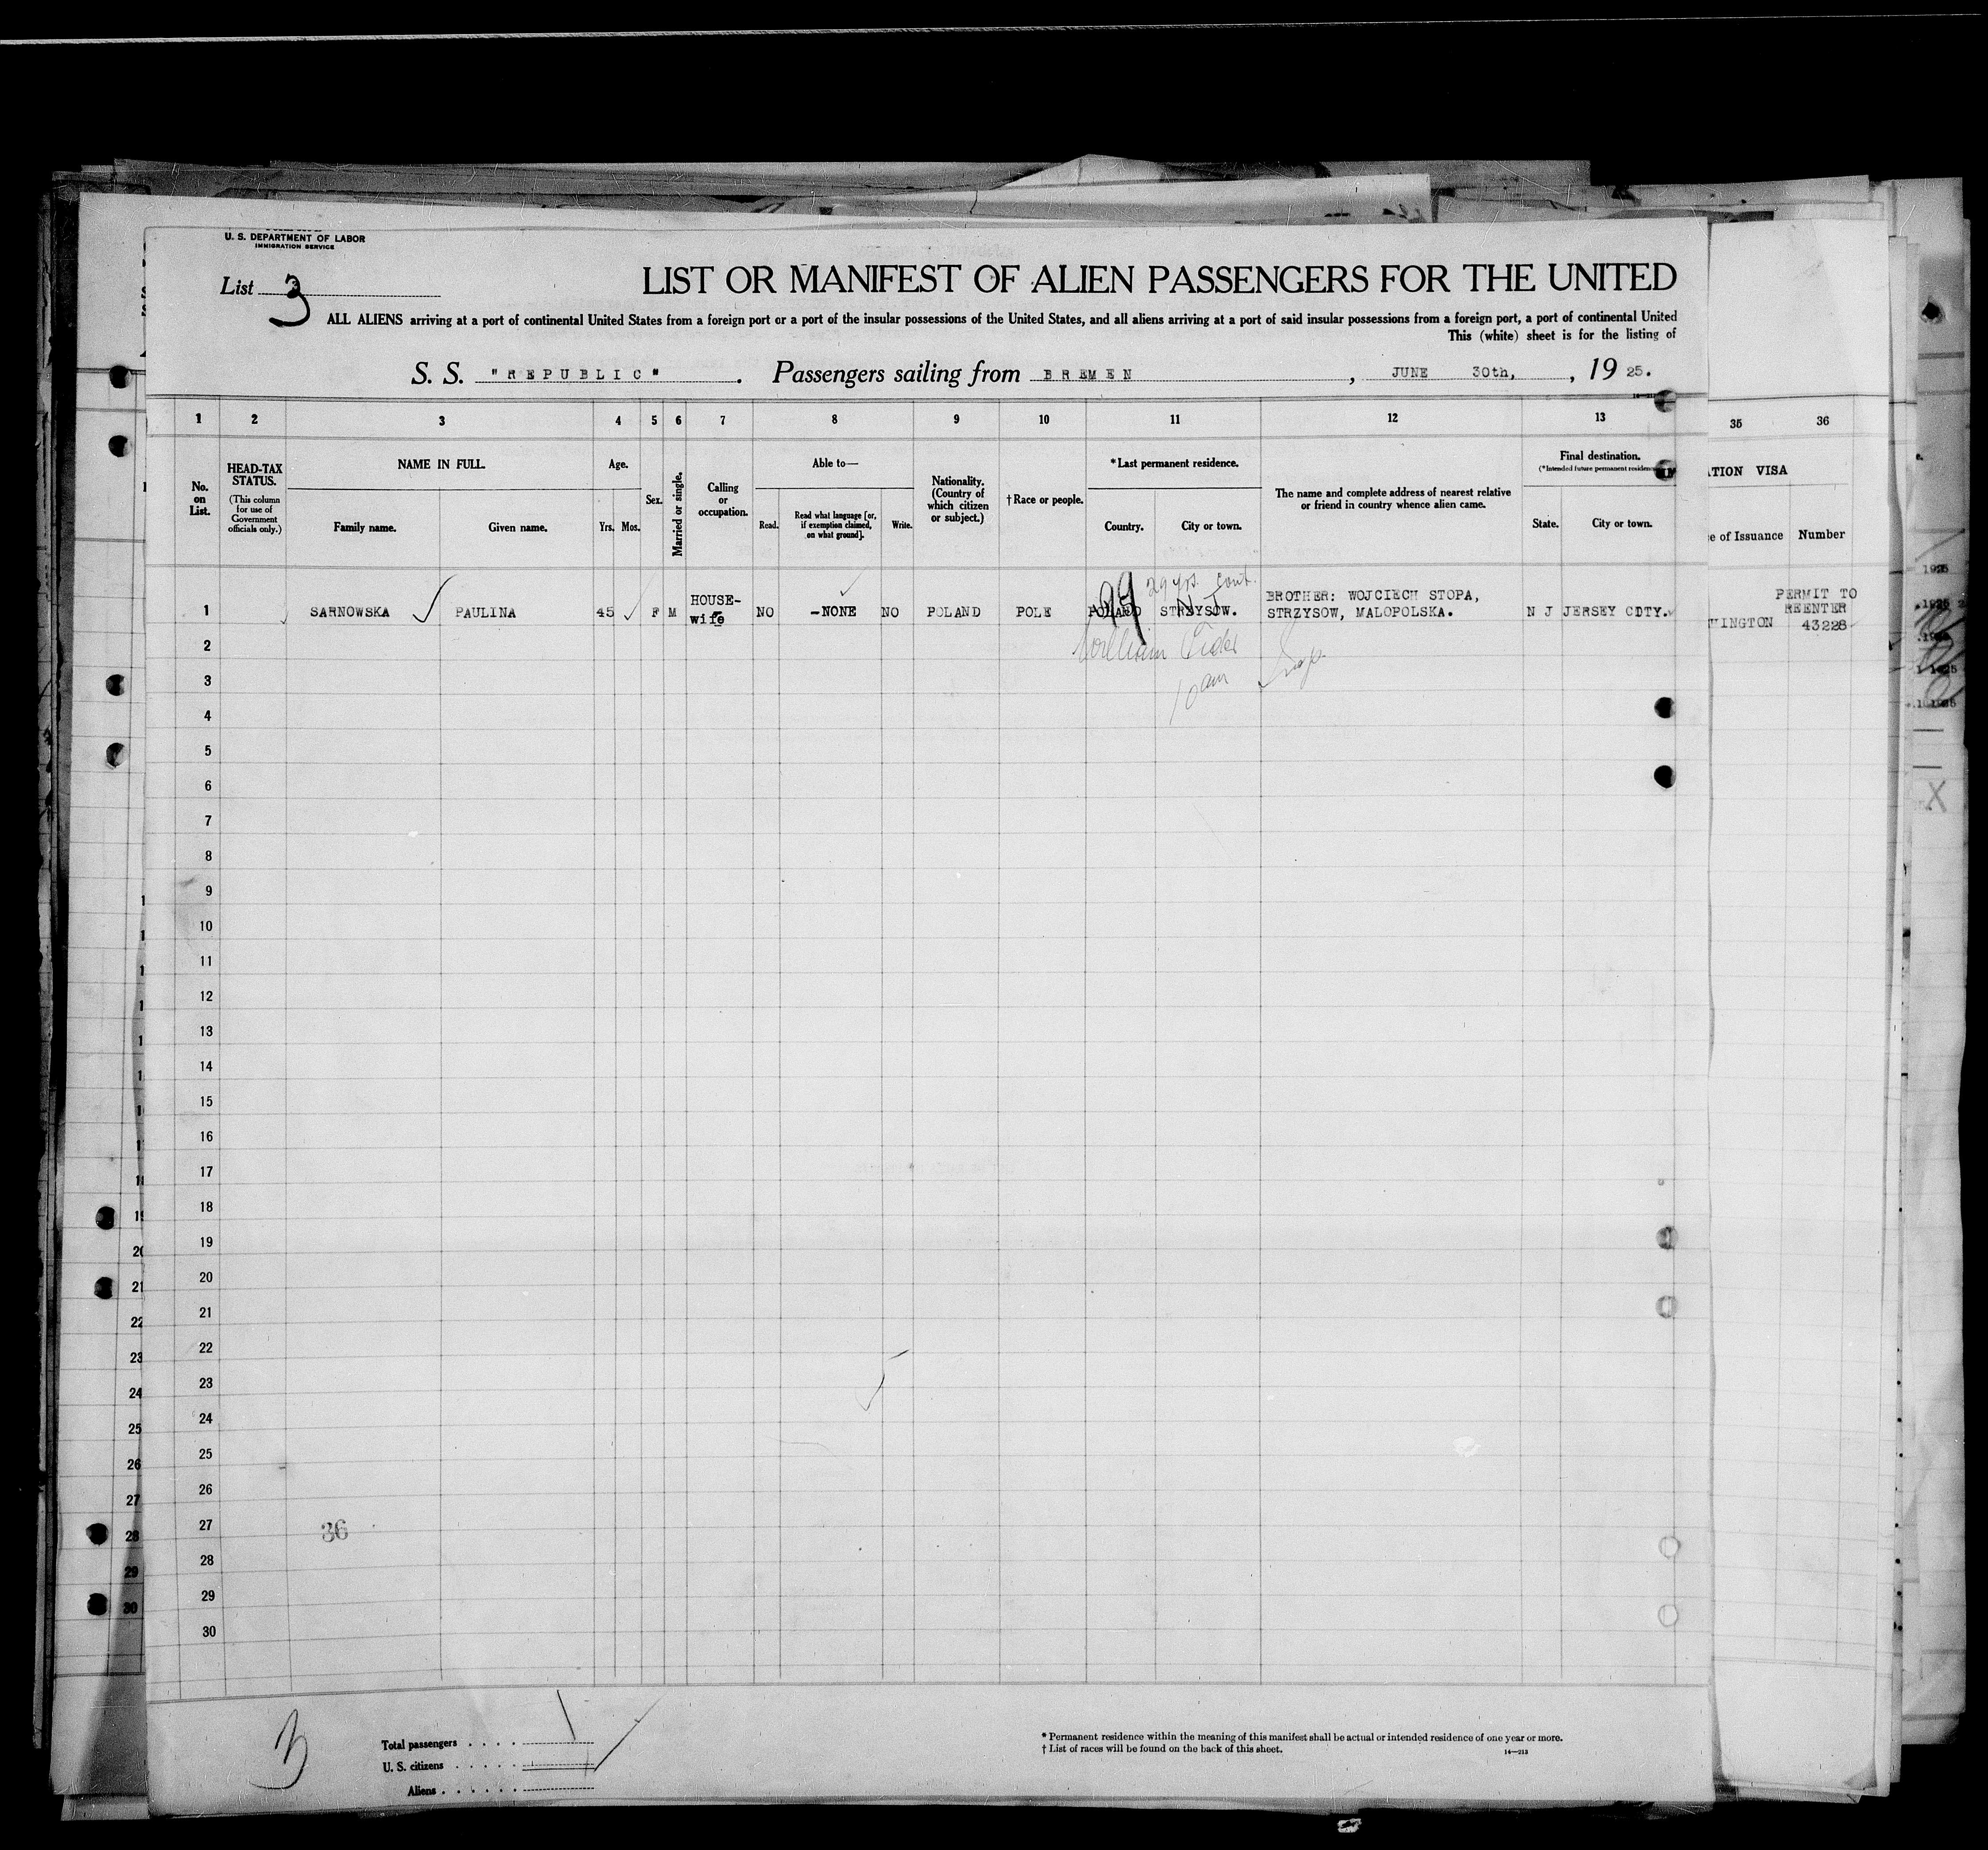 U. S. DEPARTMENT OF LABOR
IMMIGRATION SERVICE
List 3
LIST OR MANIFEST OF ALIEN PASSENGERS FOR THE UNITED
ALL ALIENS arriving at a port of continental United States from a foreign port or a port of the insular possessions of the United States, and all aliens arriving at a port of said insular possessions from a foreign port, a port of continental United
This (white) sheet is for the listing of
S. S. "REPUBLIC". Passengers sailing from BREMEN, JUNE 30th, , 19 25.
1 2 3 4 5 6 7 8 9 10 11 12 13 35 36
No. on List.
HEAD-TAX STATUS.
(This column for use of Government officials only.)
NAME IN FULL.
Family name. Given name.
Age.
Yrs. Mos.
Sex.
Married or single.
Calling or occupation.
Able to—
Read. Read what language [or, if exemption claimed, on what ground]. Write.
Nationality. (Country of which citizen or subject.)
† Race or people.
*Last permanent residence.
Country. City or town.
The name and complete address of nearest relative or friend in country whence alien came.
Final destination.
(*Intended future permanent residence
State. City or town.
ATION VISA
e of Issuance Number
29 yrs. cont.
1 SARNOWSKA PAULINA 45 F M HOUSE-wife NO -NONE NO POLAND POLE POLAND STRZYSOW. BROTHER: WOJCIECH STOPA, STRZYSOW, MALOPOLSKA. N J JERSEY CITY. INGTON PERMIT TO REENTER 43228
99 N J
William
10 am
2
3
4
5
6
7
8
9
10
11
12
13
14
15
16
17
18
19
20
21
22
23
24
25
26
27
36
28
29
30
19
20
21
22
23
24
25
26
27
28
29
30
3
Total passengers . . . . 1
U. S. citizens . . . . .
Aliens . . . . . .
* Permanent residence within the meaning of this manifest shall be actual or intended residence of one year or more.
† List of races will be found on the back of this sheet.
14—213